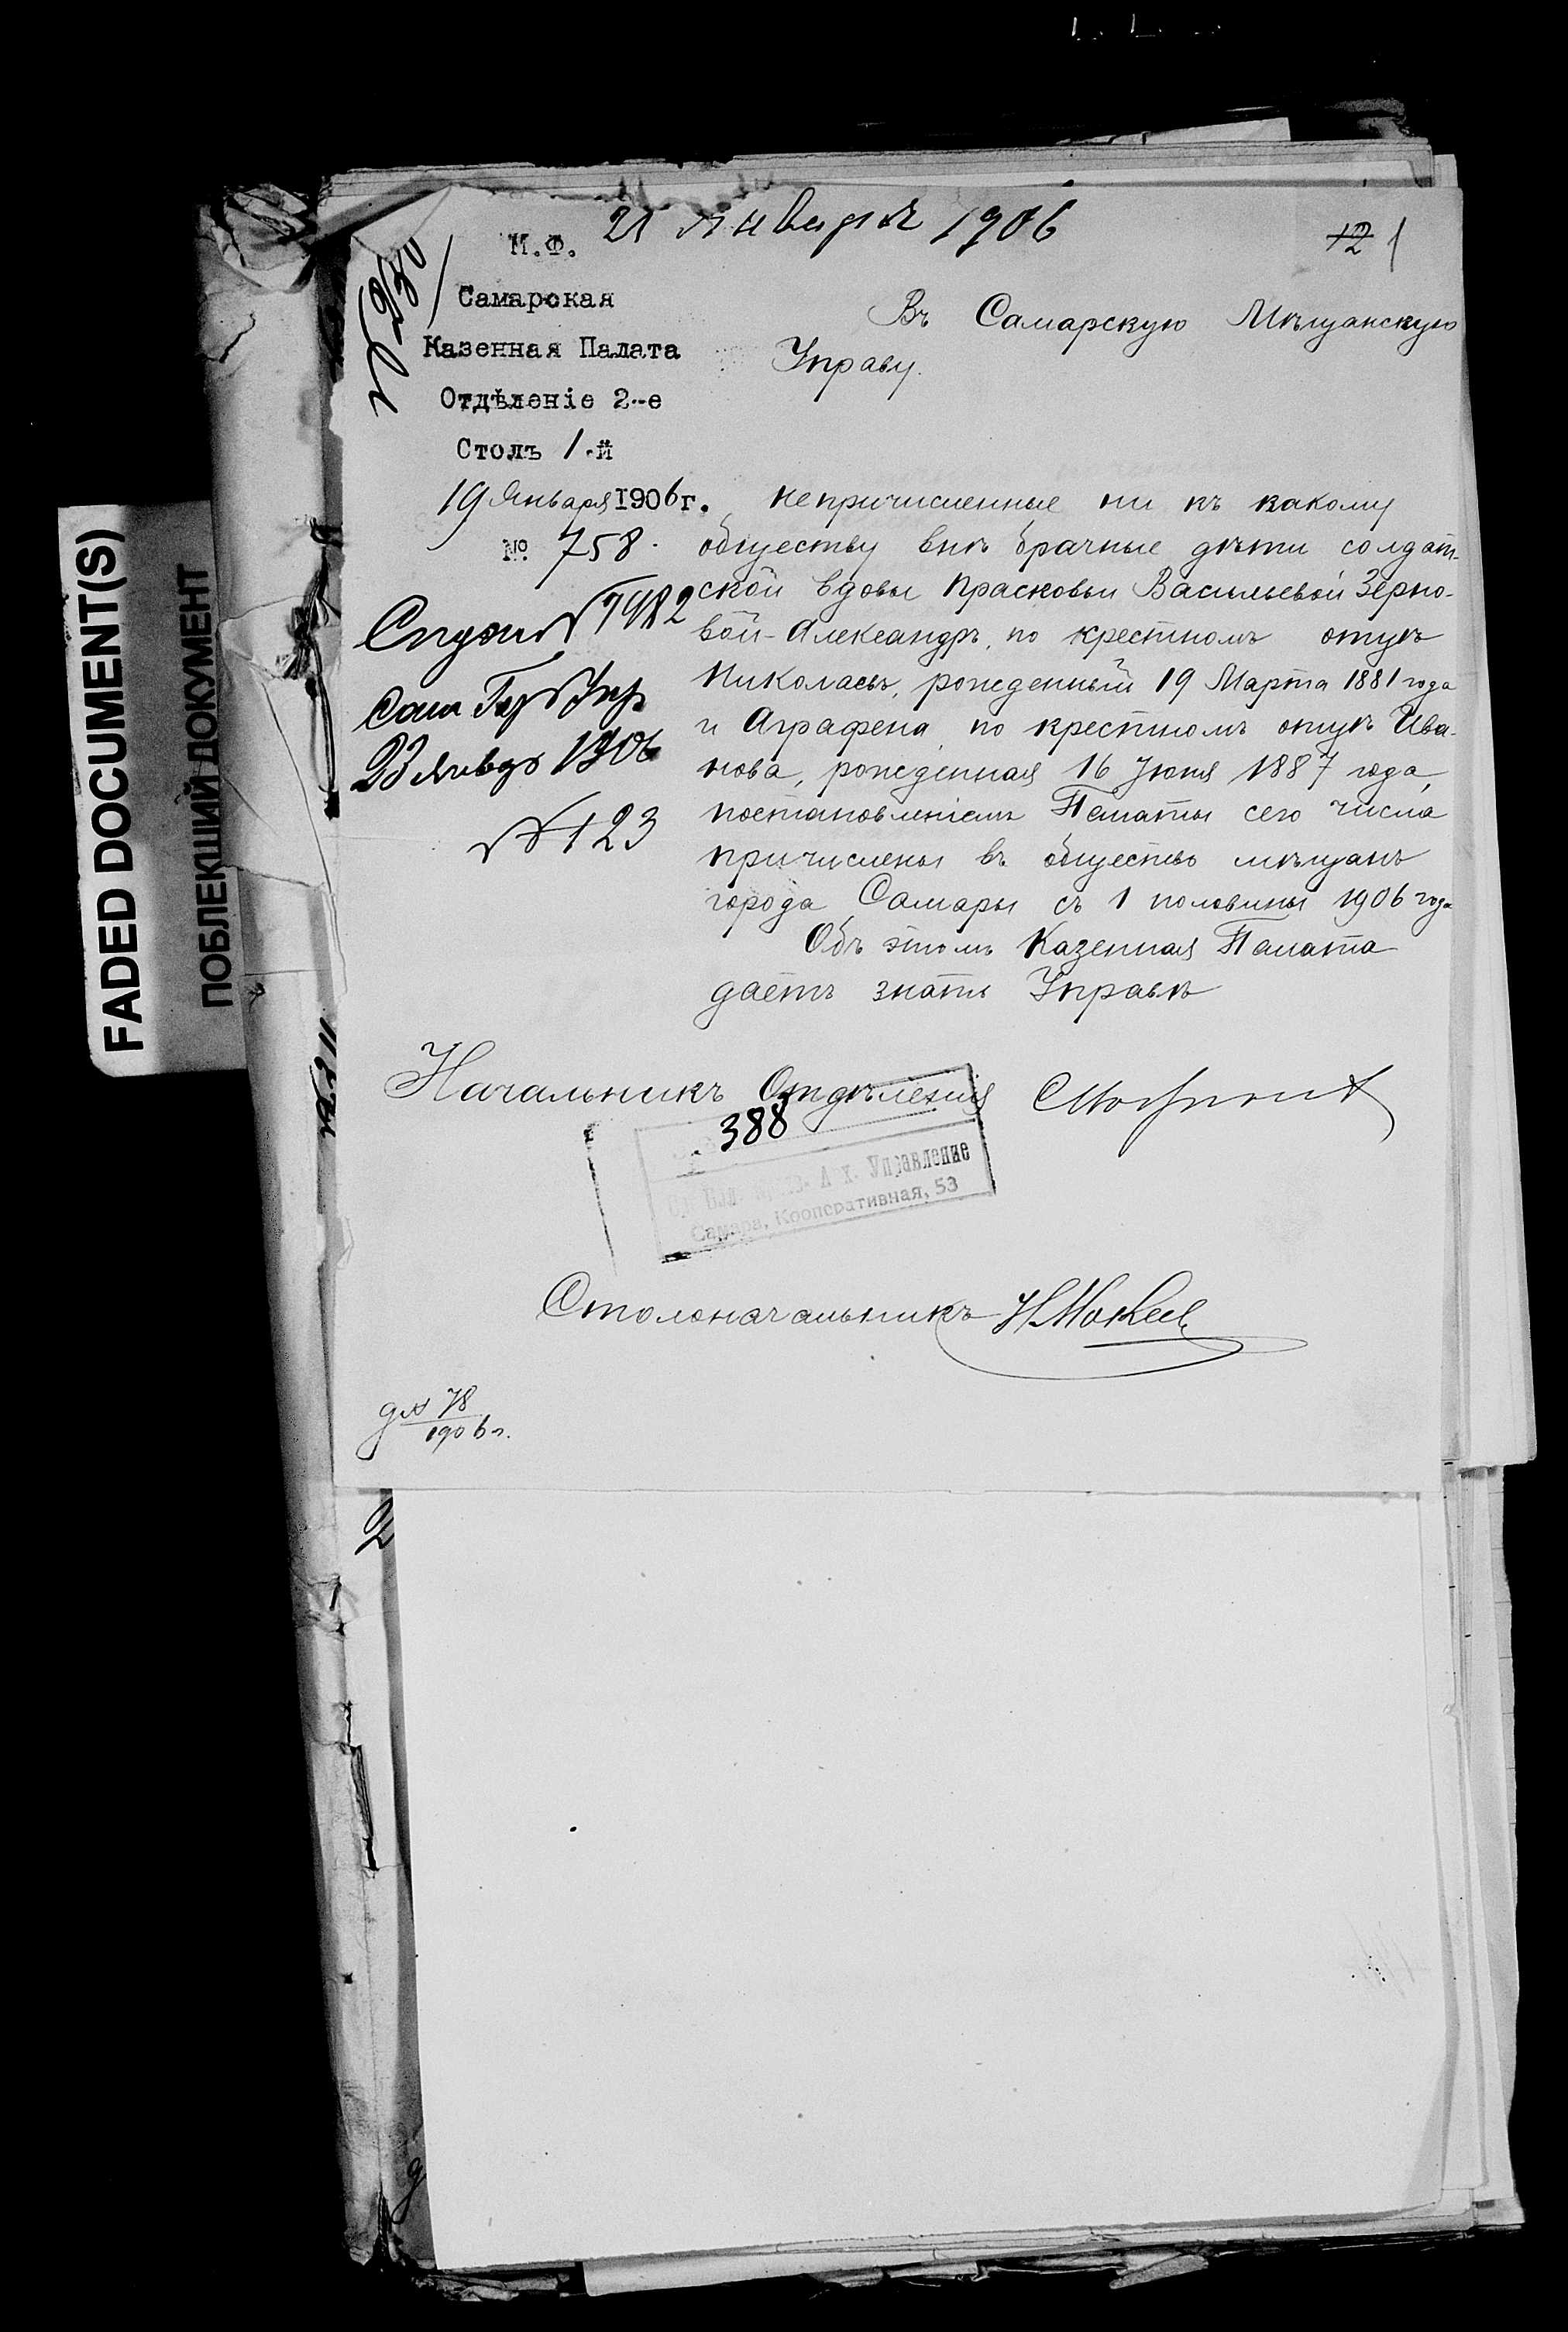 21 Января 1906
12 1
М.Ф.
Самарская
Казенная Палата
Отдѣленіе 2-е
Столъ 1-й
19 Января 1906 г.
№ 758.
Въ Самарскую Мѣщанскую
Управу.
Непричисленные ни къ какому
обществу внѣ брачные дѣти солдат-
ской вдовы Прасковьи Васильевой Зерно-
вой - Александръ, по крестномъ отцѣ
Николаевъ, рожденный 19 Марта 1881 года
и Аграфена, по крестномъ отцѣ Ива-
нова, рожденная 16 Іюня 1887 года,
постановленіемъ Палаты сего числа
причислены въ общество мѣщанъ
города Самары съ 1 половины 1906 года
Объ этомъ Казенная Палата
даетъ знать Управѣ
23 январь 1906
№ 123
Начальникъ Отдѣленія
388
Управление
Самара, Кооперативная, 53
Столоначальникъ
78
1906 г.
2
FADED DOCUMENT(S)
ПОБЛЕКШИЙ ДОКУМЕНТ